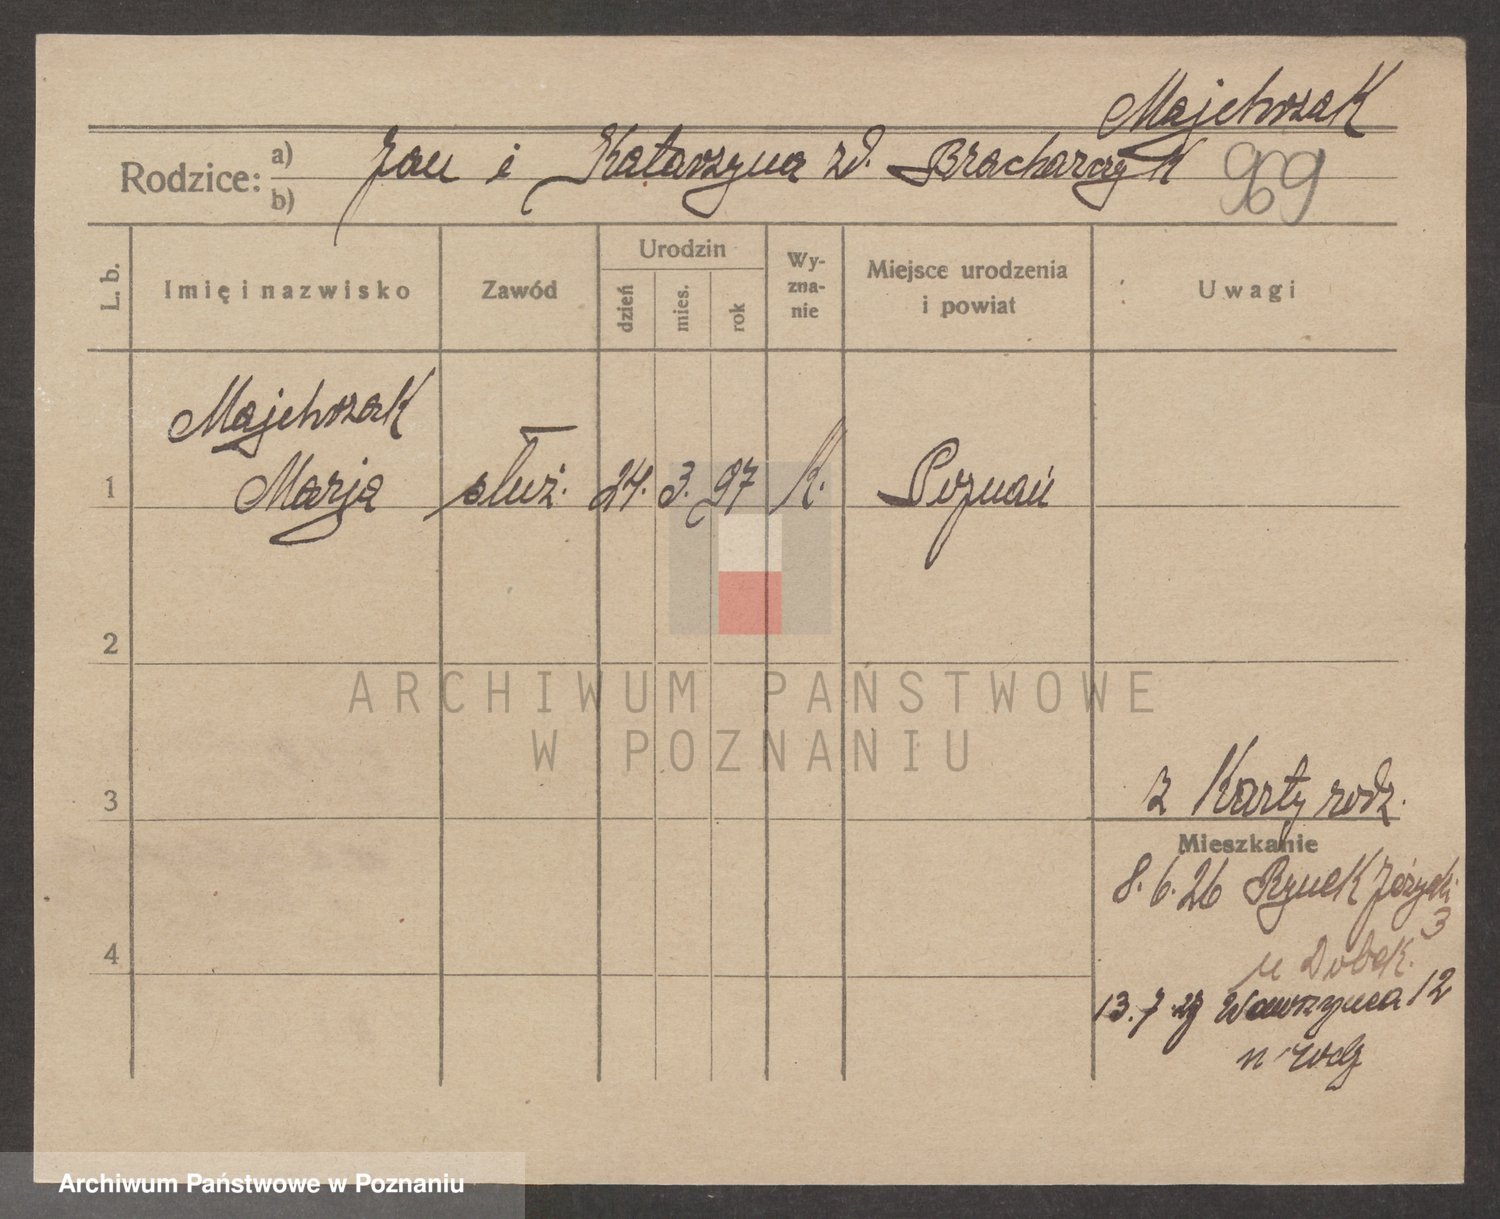 Majchrzak
Rodzice: a) b) Jan i Katarzyna zd. Bracharczyk 969
L. b. Imię i nazwisko Zawód Urodzin dzień mies. rok Wyznanie Miejsce urodzenia i powiat Uwagi
Majchrzak
1 Marja służ. 24. 3. 97 k. Poznań
2
ARCHIWUM PAŃSTWOWE
W POZNANIU
z Karty rodz.
3
Mieszkanie
8. 6. 26 Rynek Jeżycki
3
u Dobek.
4
13. 7 Wawrzyńca 12
Archiwum Państwowe w Poznaniu